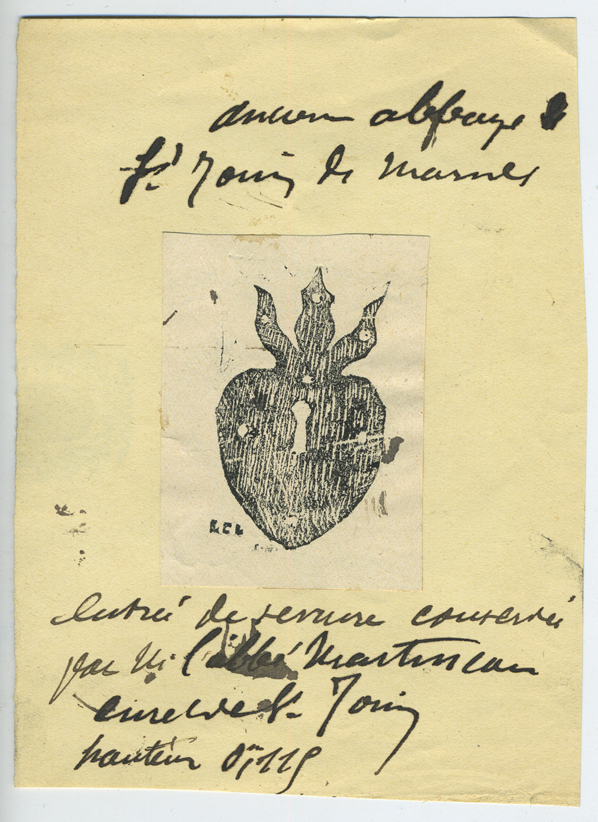 ancienne abbaye
St Jouin de Marnes
R C L
Entrée de serrure conservée
par M. l'abbé Martineau
curé de St Jouin
hauteur 0m,115